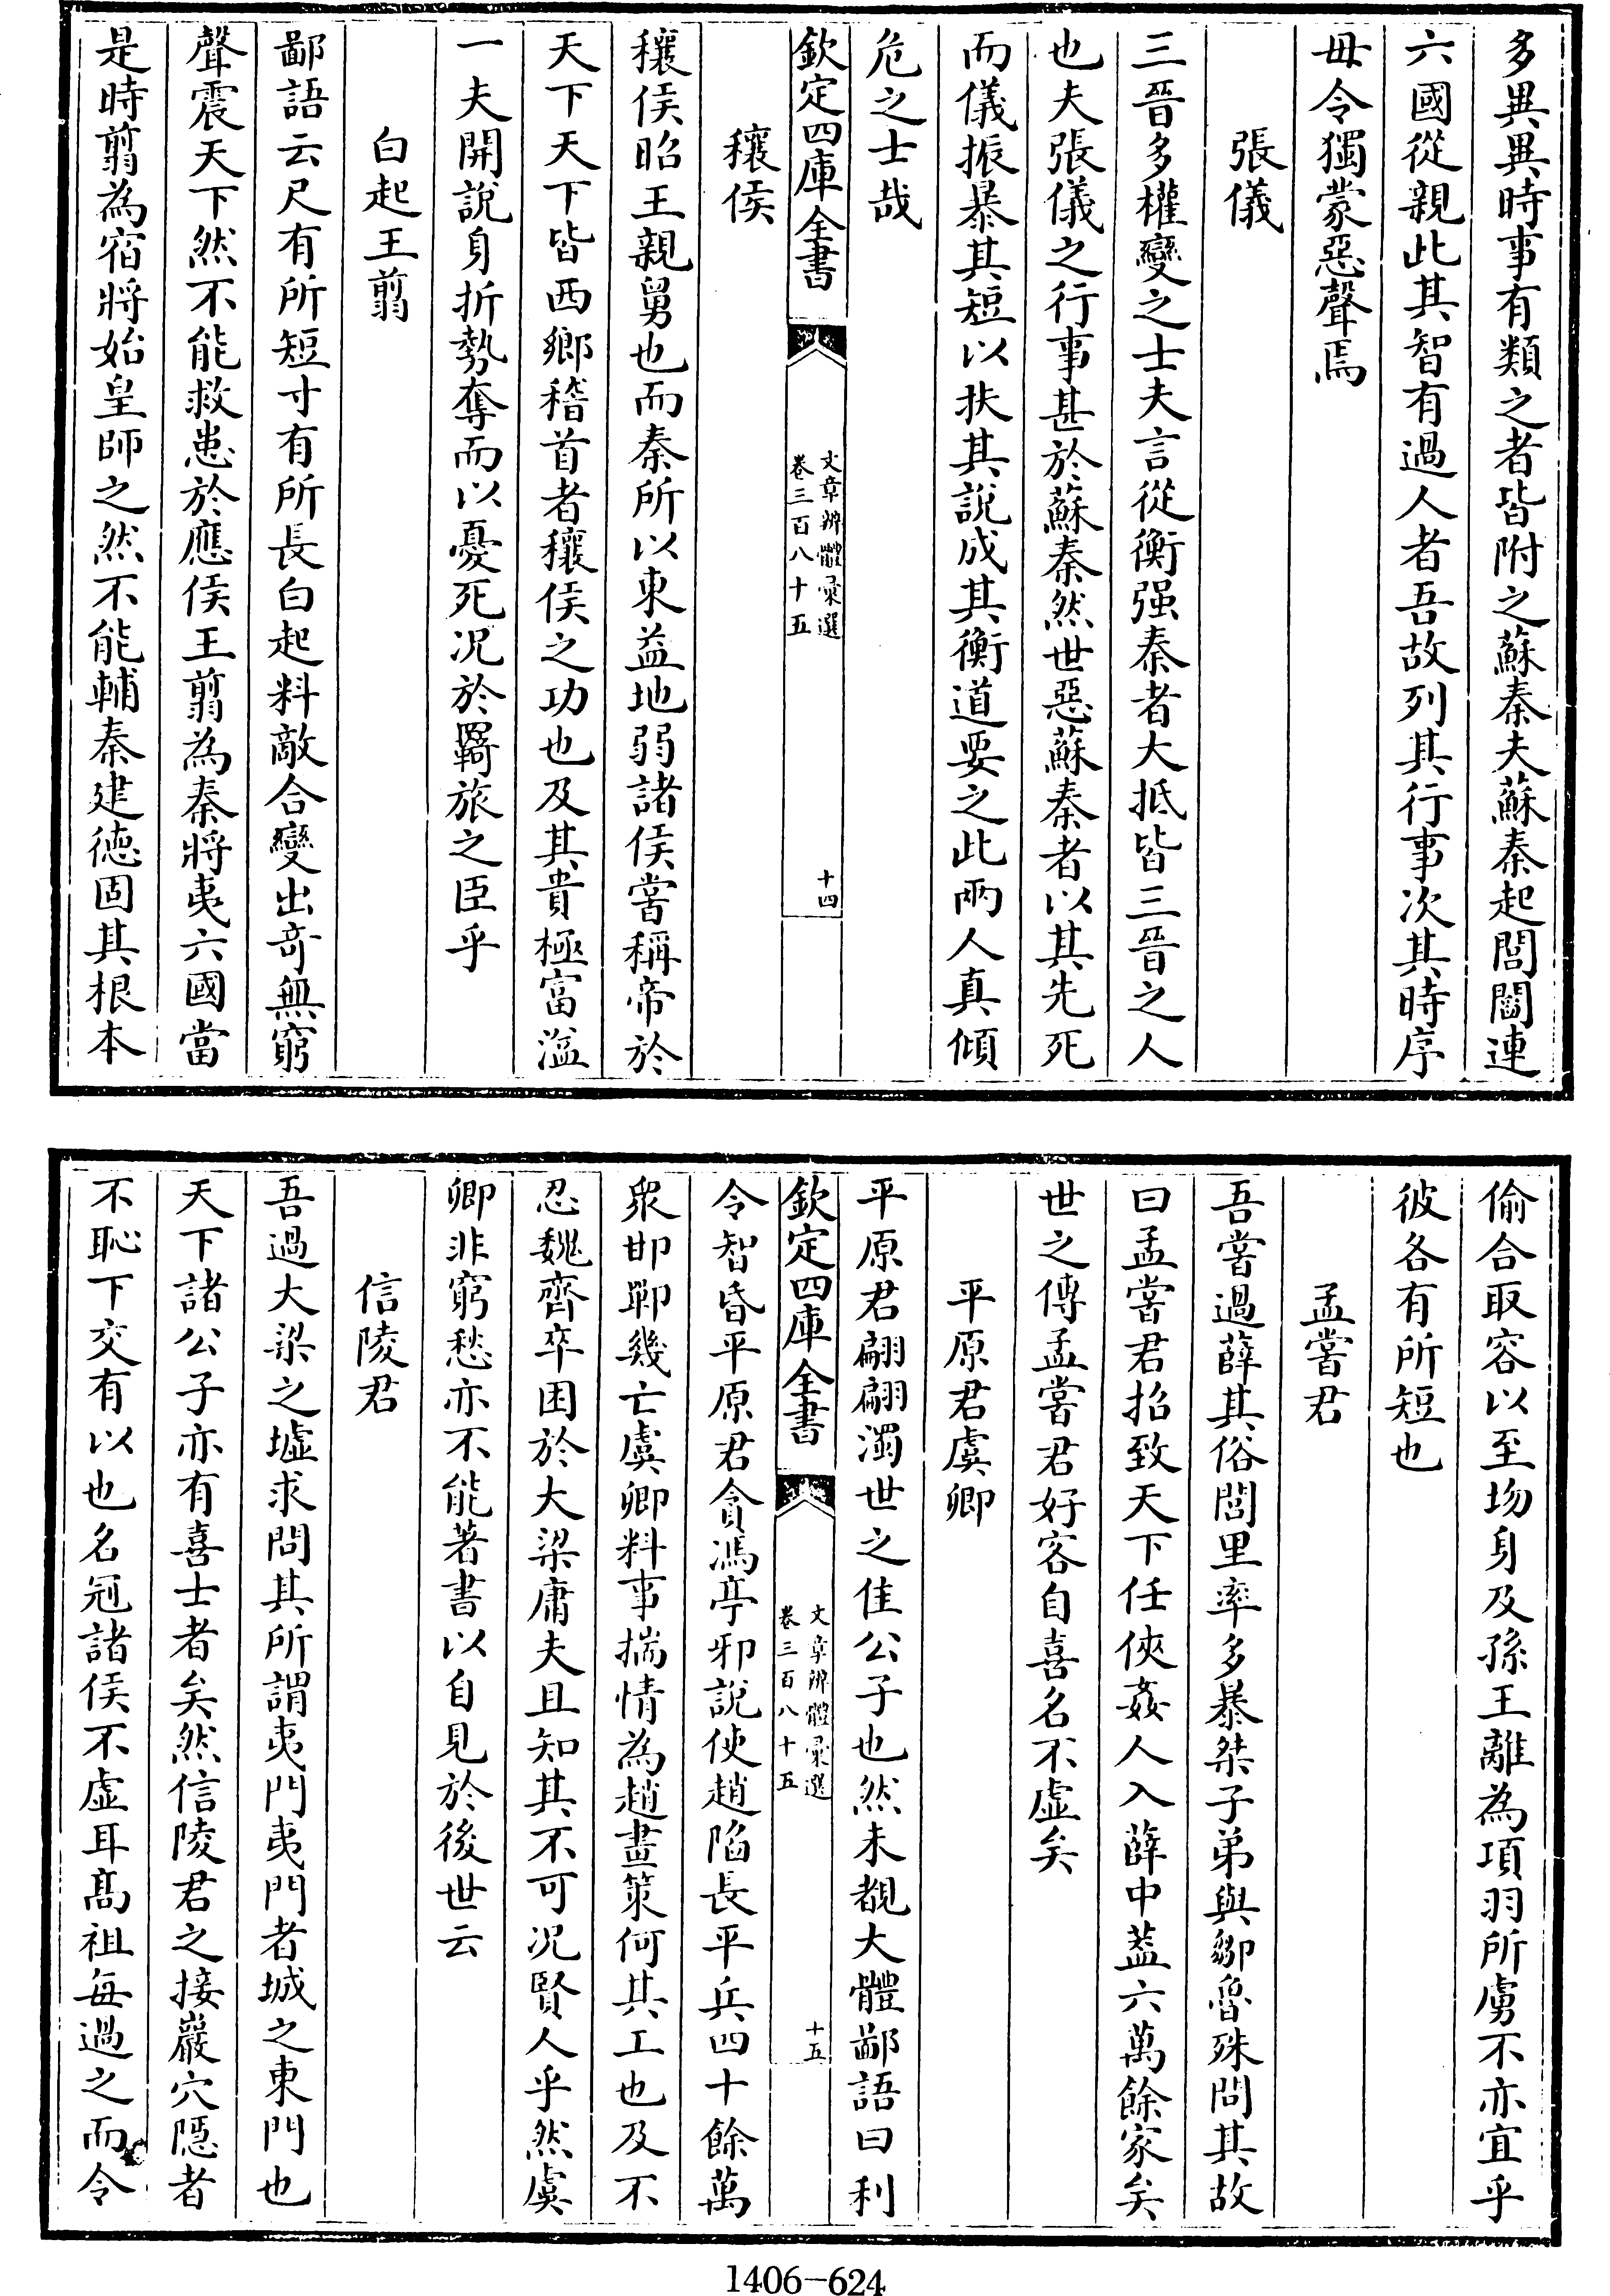 多異異時事有類之者皆附之蘇秦夫蘇秦起閭閻連
六國從親此其智有過人者吾故列其行事次其時序
毋令獨蒙惡聲焉
張儀
三晉多權變之士夫言從衡强秦者大抵皆三晉之人
也夫張儀之行事甚於蘇秦然世惡蘇秦者以其先死
而儀振暴其短以扶其說成其衡道要之此兩人真傾
危之士哉
欽定四庫全書
文章辨體彙選
卷三百八十五
十四
穰侯
穰侯昭王親舅也而秦所以東益地弱諸侯嘗稱帝於
天下天下皆西鄉稽首者穰侯之功也及其貴極富溢
一夫開說身折勢奪而以憂死况於羇旅之臣乎
白起王翦
鄙語云尺有所短寸有所長白起料敵合變出竒無窮
聲震天下然不能救患於應侯王翦為秦將夷六國當
是時翦為宿將始皇師之然不能輔秦建德固其根本
偷合取容以至圽身及孫王離為項羽所虜不亦宜乎
彼各有所短也
孟嘗君
吾嘗過薛其俗閭里率多暴桀子弟與鄒魯殊問其故
曰孟嘗君招致天下任俠姦人入薛中葢六萬餘家矣
世之傳孟嘗君好客自喜名不虛矣
平原君虞卿
平原君翩翩濁世之佳公子也然未覩大體鄙語曰利
欽定四庫全書
文章辨體彙選
卷三百八十五
十五
令智昏平原君貪馮亭邪說使趙陷長平兵四十餘萬
衆邯鄲幾亡虞卿料事揣情為趙畫策何其工也及不
忍魏齊卒困於大梁庸夫且知其不可况賢人乎然虞
卿非窮愁亦不能著書以自見於後世云
信陵君
吾過大梁之墟求問其所謂夷門夷門者城之東門也
天下諸公子亦有喜士者矣然信陵君之接巖穴隱者
不恥下交有以也名冠諸侯不虛耳髙祖每過之而令
1406-624